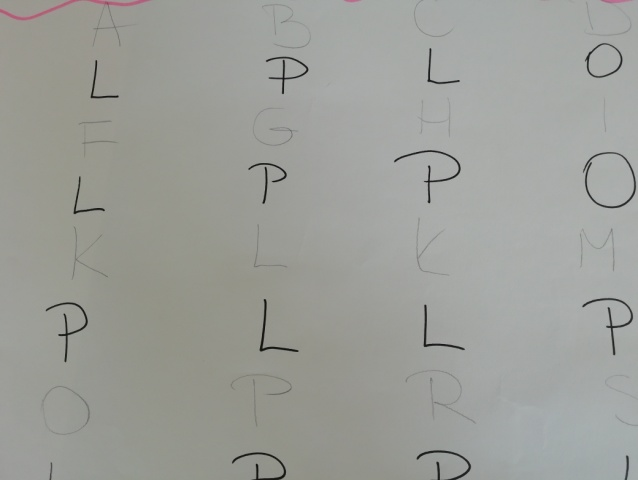 A B C D
L P L O
F G H I
L P P O
K L K M
P L L P
O P R S
P P